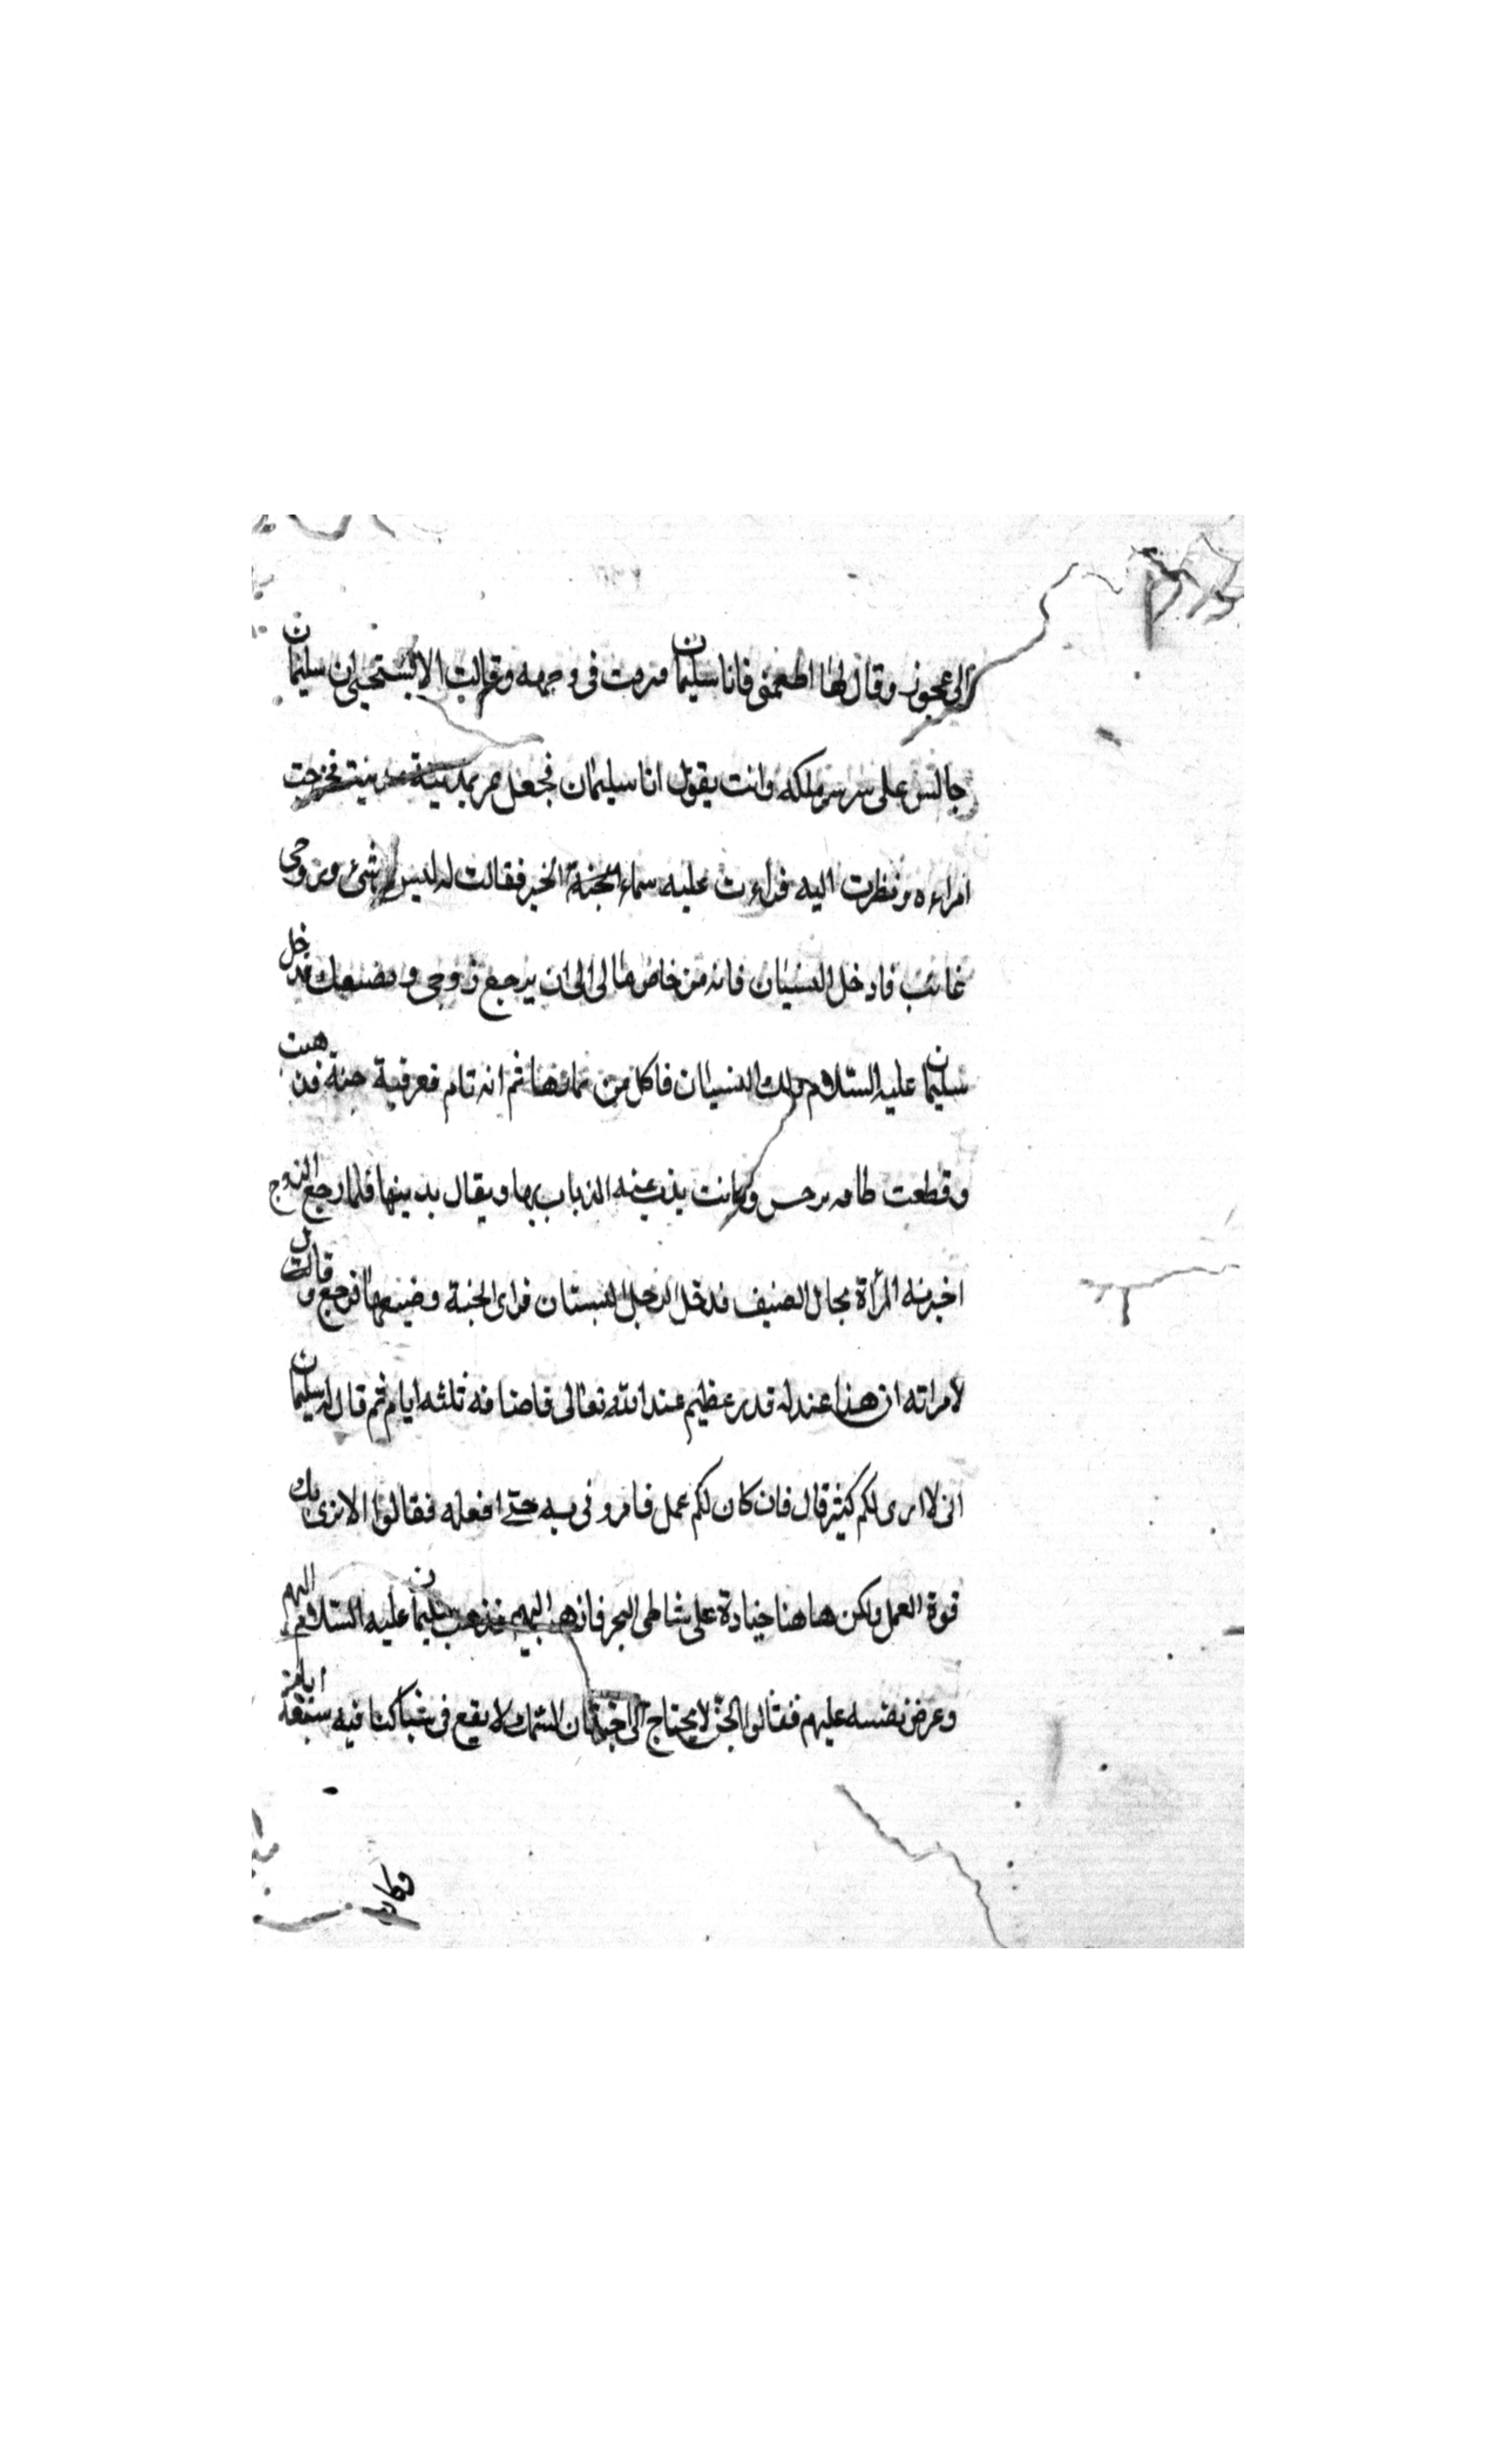 الى عجوز وقال لها اطعمنى فانا سليمان فبزقت فى وجهه وقالت الا تستحيى ان سليمان
جالس على سرير ملكه وانت يقول انا سليمان فجعل يمر بمدينة مدينة فخرجت
امراءه ونظرت اليه فراءت عليه سماء الخير فقالت له ليس لى شئ وزوجى
غائب فادخل البستان فانه من خاص مالى الى ان يرجع زوجى و فدخل
سليمان عليه السلام ذلك البستان فاكل من ثمارها ثم انه نام فعرفته حية فذهبت
وقطعت طاقه نرجس وكانت يذب عنه الذباب بها ويقال بدينها فلما رجع الزوج
اخبرته المرأة بحال الضيف فدخل الرجل البستان فراى الحية وضيعها فرجع وقال
لامراته ان هذا عندله قدر عظيم عند الله تعالى فاضافه ثلثه ايام ثم قال له سليمان
انى لا ارى لكم كثير قال فان كان لكم عمل فامرونى به حتى افعله فقالوا الا نرى بك
قوة العمل ولكن هاهنا صيادة على شاطى البحر فاذهب اليهم فذهب سليمان عليه السلام اليهم
وعرض نفسه عليهم فقالوا نحن لا يحتاج الى فان السمك لا يقع فى شباكنا فيه سبعة ايام
وكان